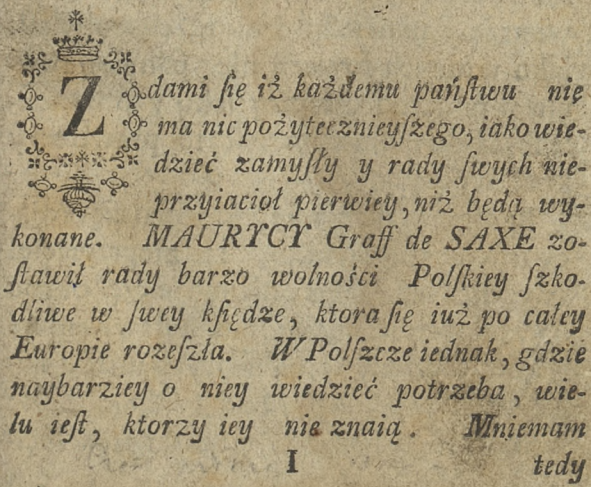 Zdami ſię iż każdemu pańſtwu nię
ma nic pożytecznieyſzego, iako wie-
dzieć zamyſły y rady ſwych nie-
przyiacioł pierwiey, niż będą wy-
konane. MAURYCY Graff de SAXE zo-
ſtawił rady barzo wolności Polſkiey ſzko-
dliwe w ſwey kſiędze, ktora ſię iuż po całey
Europie rozeſzła. W Polſzcze iednak, gdzie
naybarziey o niey wiedzieć potrzeba, wie-
lu ieſt, ktorzy iey nie znaią. Mniemam
I tedy